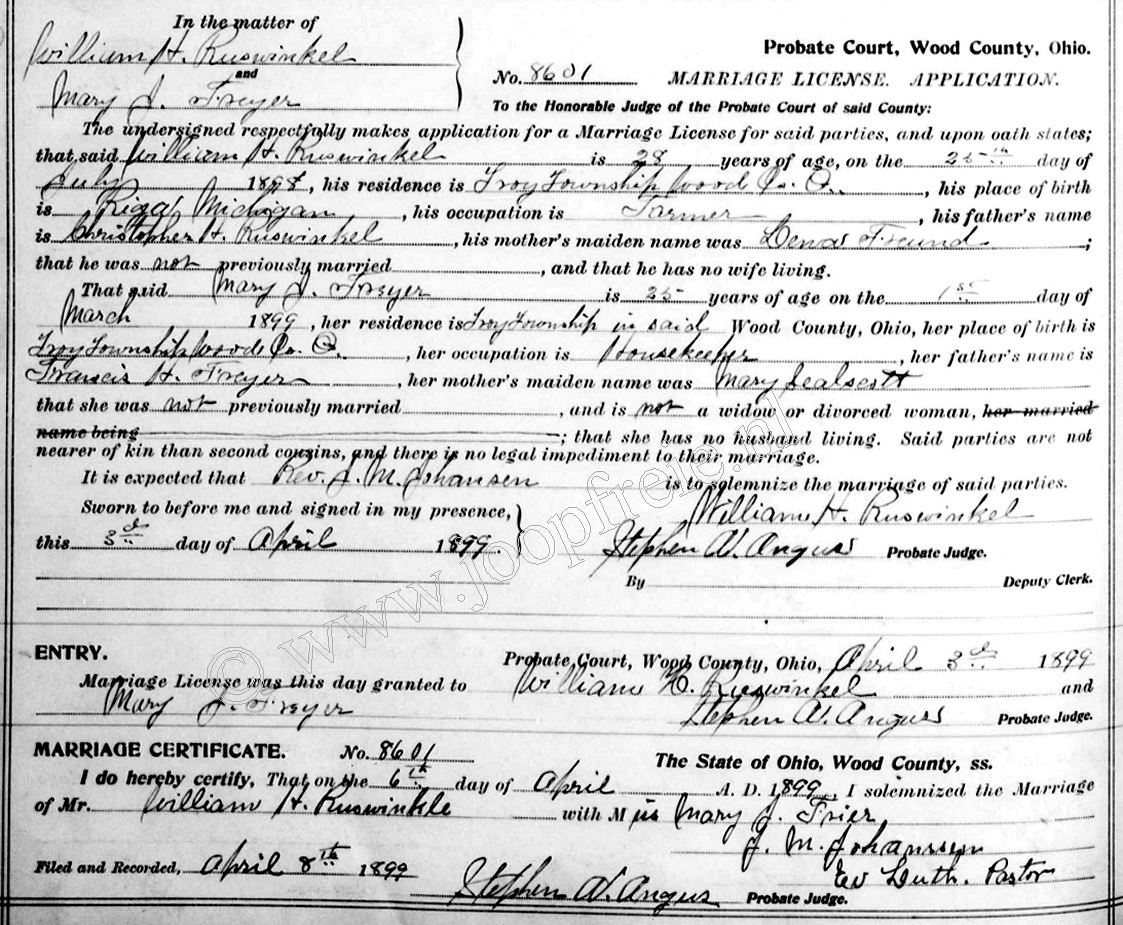 In the matter of
William H. Ruswinkel
and
Mary J. Freyer
Probate Court, Wood County, Ohio.
No. 8601 MARRIAGE LICENSE. APPLICATION.
To the Honorable Judge of the Probate Court of said County:
The undersigned respectfully makes application for a Marriage License for said parties, and upon oath states;
that said William H. Ruswinkel is 28 years of age, on the 25th day of
July 1898, his residence is Troy Township Wood Co. O., his place of birth
is Riga Michigan, his occupation is Farmer, his father's name
is Christopher H. Ruswinkel, his mother's maiden name was Lena Freund;
that he was not previously married, and that he has no wife living.
That said Mary J. Freyer is 25 years of age on the 1st day of
March 1899, her residence is Troy Township in said Wood County, Ohio, her place of birth is
Troy Township Wood Co. O., her occupation is Housekeeper, her father's name is
Francis H. Freyer, her mother's maiden name was Mary Sealscott
that she was not previously married, and is not a widow or divorced woman, her married
name being; that she has no husband living. Said parties are not
nearer of kin than second cousins, and there is no legal impediment to their marriage.
It is expected that Rev. J. M. Johansen is to solemnize the marriage of said parties.
Sworn to before me and signed in my presence, William H. Ruswinkel
this 3d day of April 1899. Stephen W. Angus Probate Judge.
By Deputy Clerk.
© www.joopfreie.nl
ENTRY. Probate Court, Wood County, Ohio, April 3d 1899
Marriage License was this day granted to William H. Ruswinkel and
Mary J. Freyer Stephen W. Angus Probate Judge.
MARRIAGE CERTIFICATE. No. 8601 The State of Ohio, Wood County, ss.
I do hereby certify, That on the 6th day of April A. D. 1899, I solemnized the Marriage
of Mr. William H. Ruswinkle with Miss Mary J. Frier
J. M. Johanssen
Filed and Recorded, April 8th 1899 Ev Luth. Pastor
Stephen W. Angus Probate Judge.